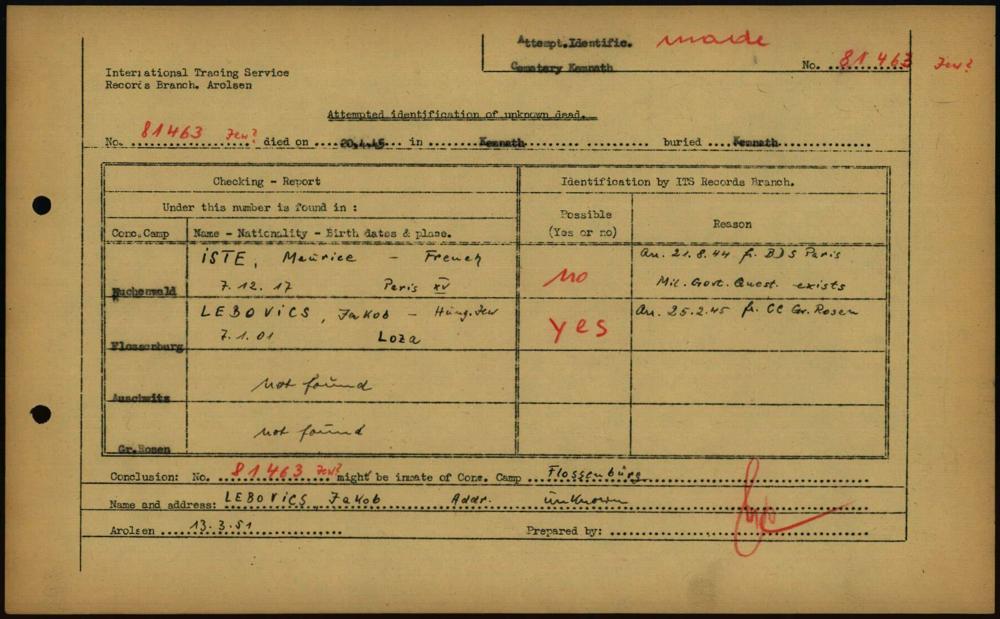 Attempt.Identific. made
Cemetery Kemnath No. 81463 Jew?
International Tracing Service
Records Branch. Arolsen
Attempted identification of unknown dead.
No. 81463 Jew? died on 20.4.45 in Kemnath buried Kemnath
Checking - Report Identification by ITS Records Branch.
Under this number is found in :
Conc.Camp Name - Nationality - Birth dates & place. Possible (Yes or no) Reason
Buchenwald ISTE, Maurice - French no Arr. 21.8.44 fr. BDS Paris
7.12.17 Paris XV Mil. Govt. Quest. exists
Flossenburg LEBOVICS, Jakob - Hung. Jew yes Arr. 25.2.45 fr. CC Gr. Rosen
7.1.01 Loza
Auschwitz not found
Gr.Rosen not found
Conclusion: No. 81463 Jew? might be inmate of Conc. Camp Flossenbürg
Name and address: LEBOVICS, Jakob Addr. unknown
Arolsen 13.3.51 Prepared by: